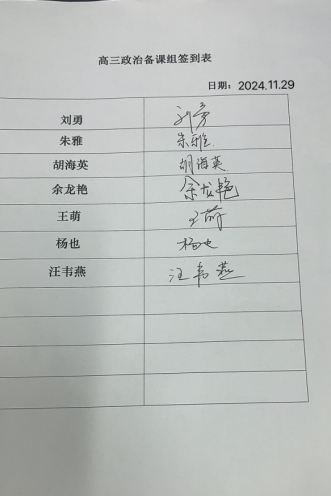 高三政治备课组签到表
日期：2024.11.29
刘勇 刘勇
朱雅 朱雅
胡海英 胡海英
余龙艳 余龙艳
王萌 王萌
杨也 杨也
汪韦燕 汪韦燕